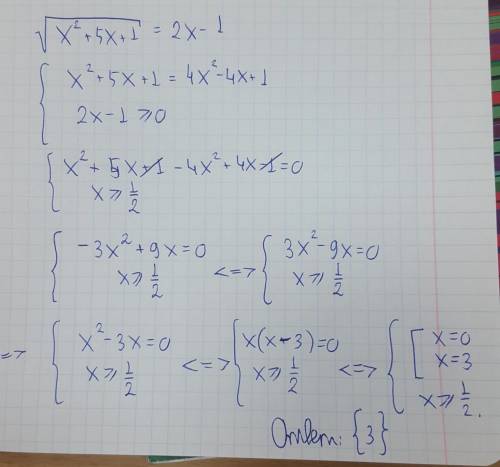 √(x²+5x+1) = 2x-1
{ x²+5x+1 = 4x²-4x+1
2x-1 ⩾ 0
{ x²+5x+1-4x²+4x-1=0
x ⩾ 1/2
{ -3x²+9x=0 <=> { 3x²-9x=0
x ⩾ 1/2 x ⩾ 1/2
=> { x²-3x=0 <=> { x(x-3)=0 <=> { [ x=0
x=3
x ⩾ 1/2 x ⩾ 1/2 x ⩾ 1/2.
Ответ: {3}